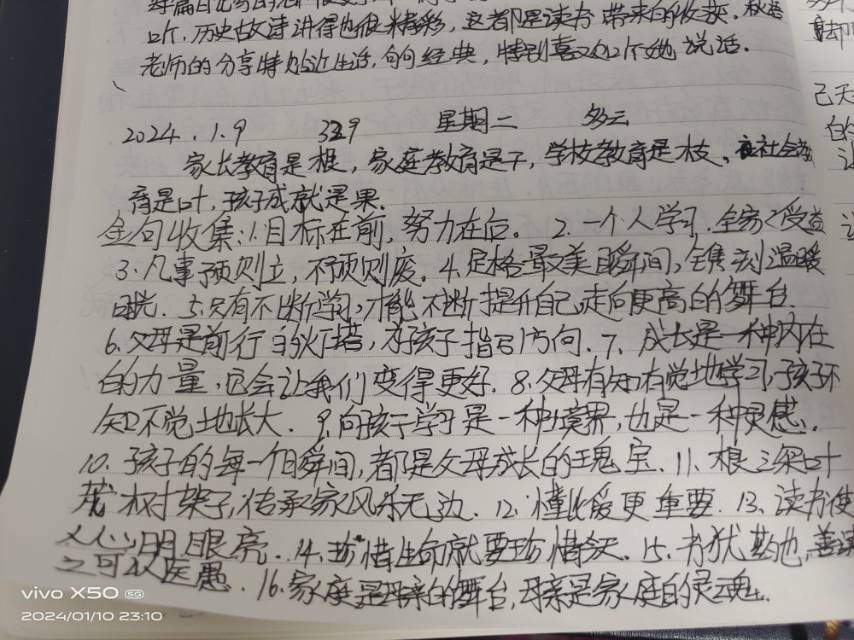 口才,历史故事讲得也很精彩,这都是读书带来的收获.
老师的分享特贴近生活,句句经典,特别喜欢听她说话.
2024.1.9 339 星期二 多云
家长教育是根,家庭教育是干,学校教育是枝、社会教
育是叶,孩子成就是果.
金句收集:1.目标在前,努力在后。2.一个人学习.全家人受益
3.凡事预则立,不预则废.4.定格最美瞬间,镌刻温暖
时光.5.只有不断学习,才能不断提升自己,走向更高的舞台.
6.父母是前行的灯塔,为孩子指引方向.7.成长是一种内在
的力量,它会让我们变得更好.8.父母有知有觉地学习,孩子不
知不觉地长大.9.向孩子学习是一种境界,也是一种灵感.
10.孩子的每一个瞬间,都是父母成长的瑰宝.11.根深叶
茂树架子,传承家风乐无边.12.懂比爱更重要.13.读书使
人心明眼亮.14.珍惜生命就要珍惜今天.15.书犹药也,善读
之可以医愚.16.家庭是母亲的舞台,母亲是家庭的灵魂.
己天
的
vivo X50 5G
2024/01/10 23:10